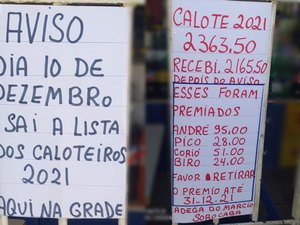 AVISO
DIA 10 DE
DEZEMBRO
SAI A LISTA
DOS CALOTEIROS
2021
AQUI NA GRADE
CALOTE 2021
2363,50
RECEBI. 2165,50
DEPOIS DO AVISO
ESSES FORAM
PREMIADOS
ANDRÉ 95,00
PICO 28,00
CORIO 31.00
BIRO 24.00
FAVOR RETIRAR
O PREMIO ATÉ
31.12.21
ADEGA DO MARCIO
SOROCABA